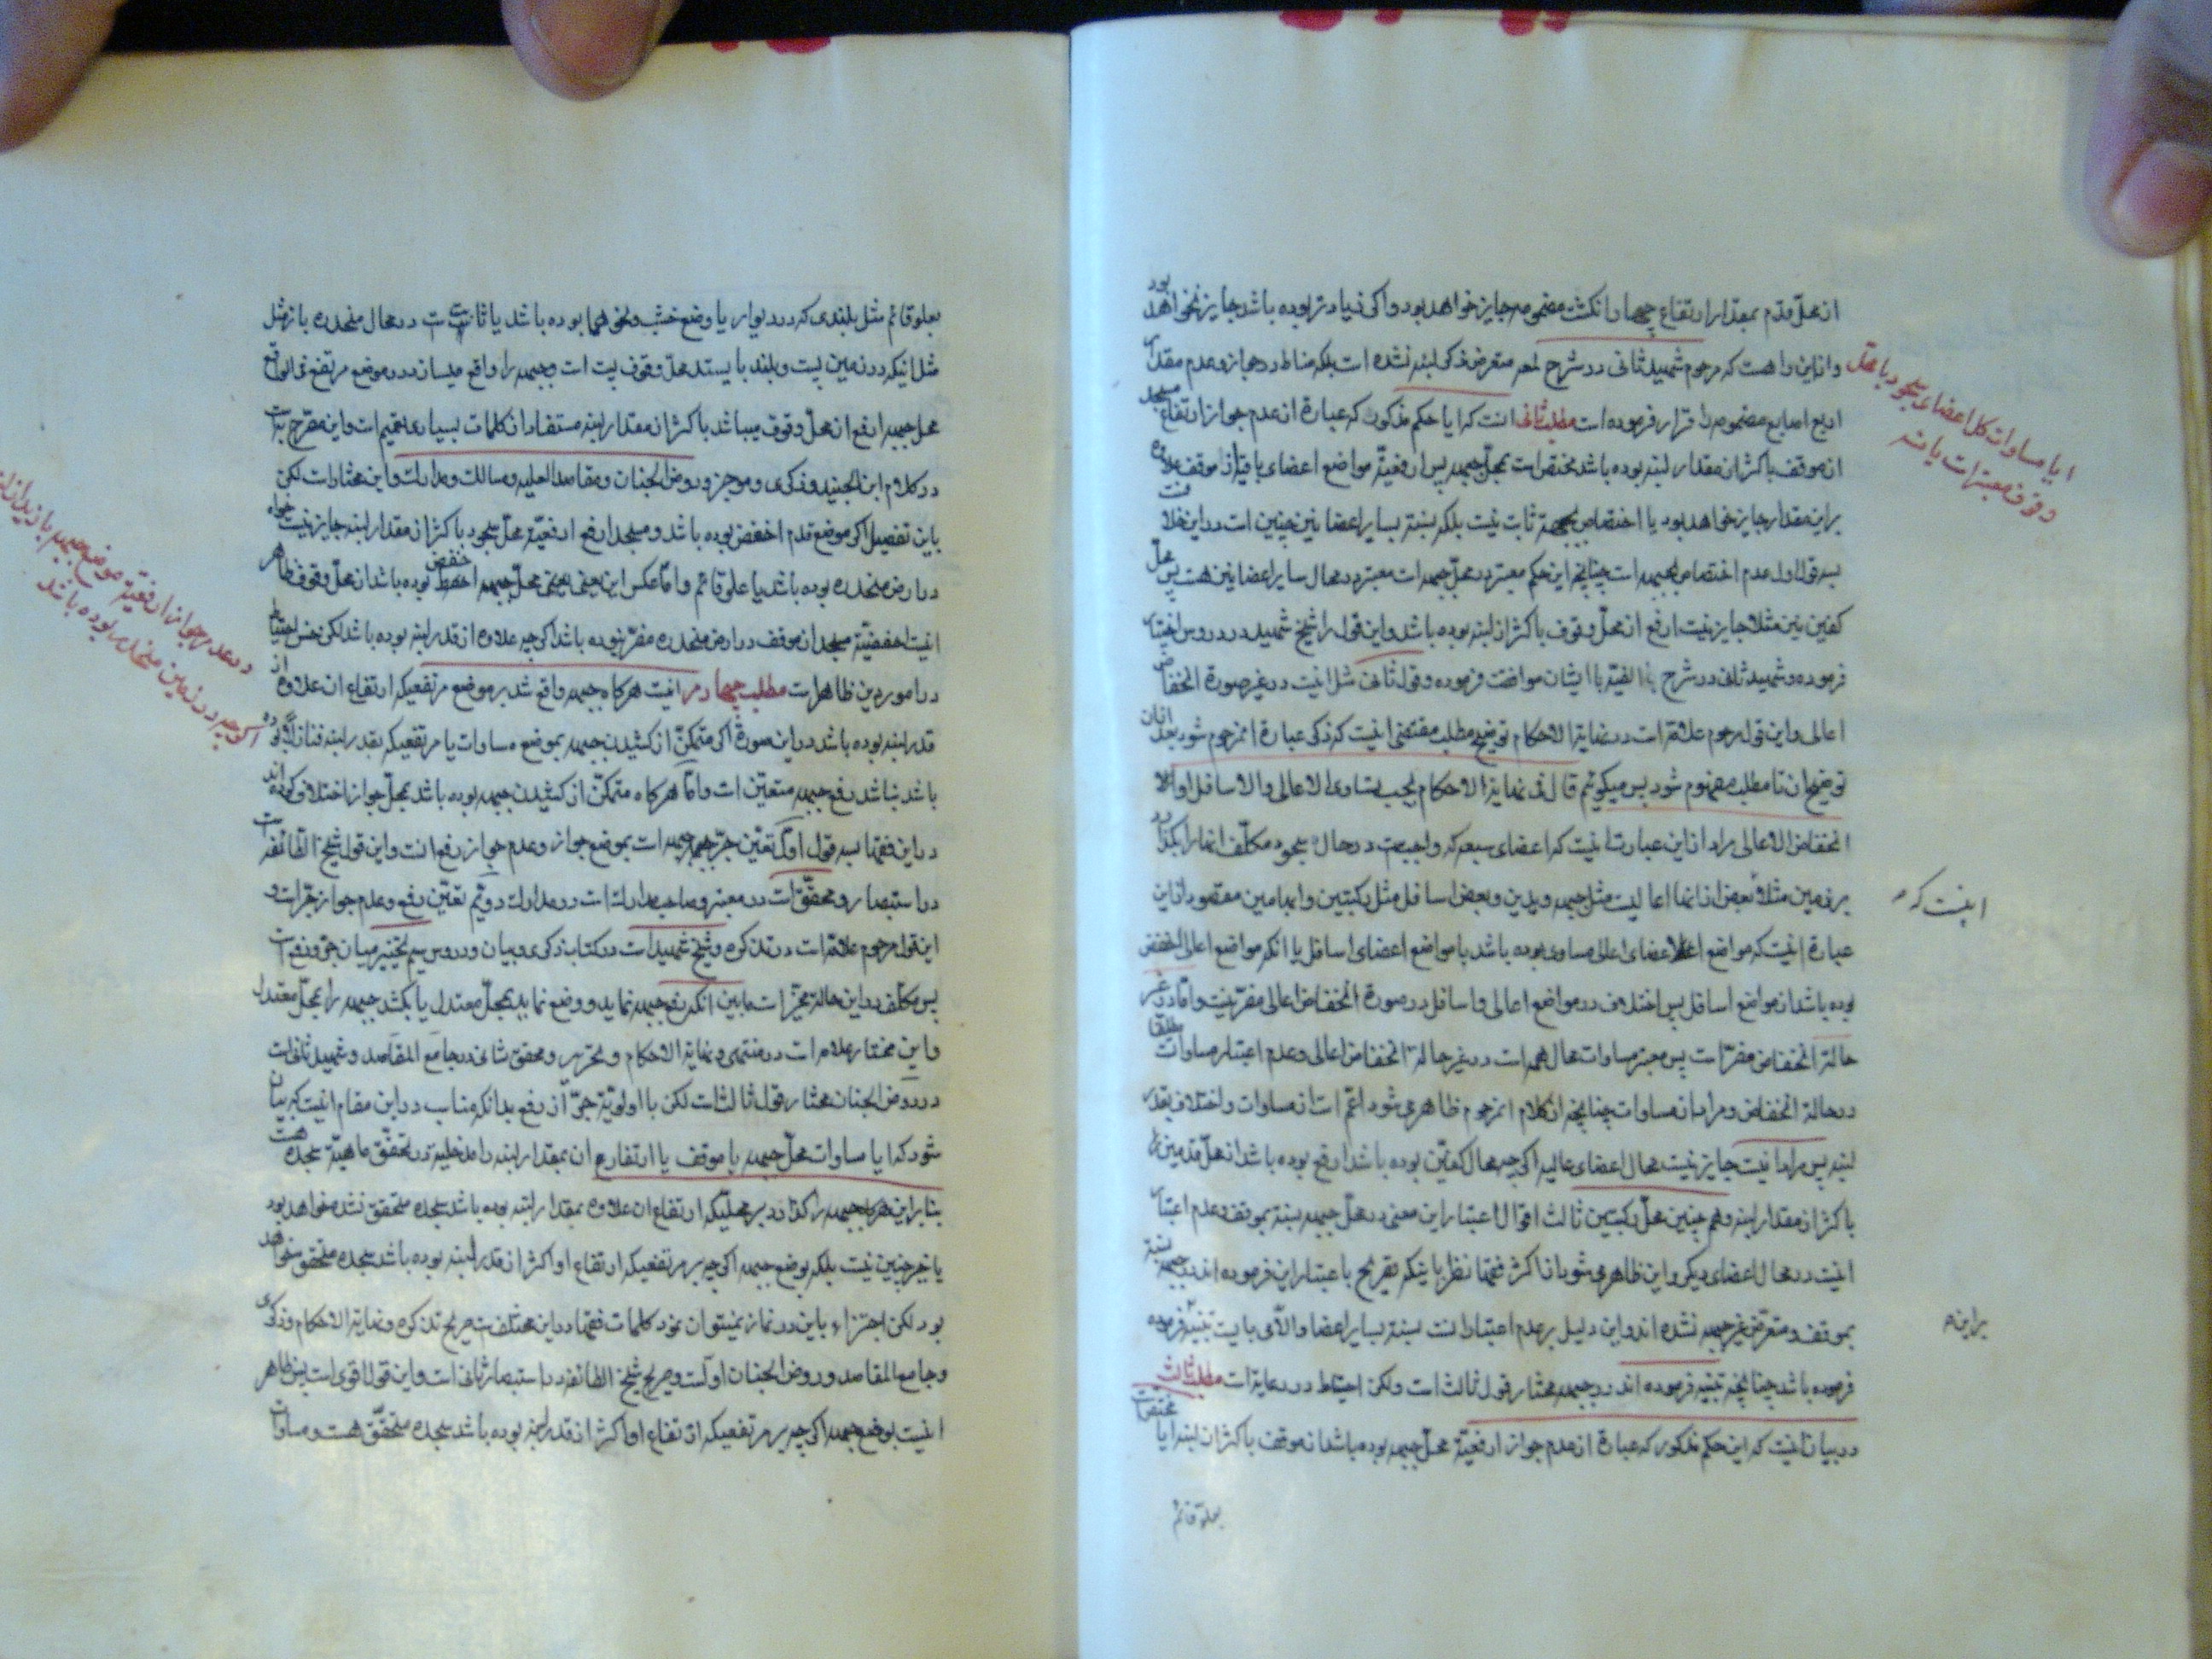 از محلّ قدم بمقدار ارتفاع چهار انکشت مضمومه جایز خواهد بود و اکر زیادتر بوده باشد جایز نخواهد بود
و از این راهست که مرحوم شهید ثانی در شرح لمعه متعرض ذکر لبنه نشده است بلکه مناط در جواز و عدم مقدار
اربع اصابع مضمومه را قرار فرموده است مطلب ثانی انست که ایا حکم مذکور که عبارة از عدم جواز ارتفاع مسجد
از موقف باکثر از مقدار لبنه بوده باشد مختص است بمحلّ جبهه پس ارفعیّة مواضع اعضای باقیه از موقف علاوه
بر این مقدار جایز خواهد بود یا اختصاص بجبهه ثابت نیست بلکه بنسبة بسایر اعضا نیز چنین است در این خلافست
بسه قول اول عدم اختصاص بجبهه است چنانچه این حکم معتبر در محلّ جبهه است معتبر در محال سایر اعضا نیز هست پس محلّ
کفین نیز مثلا جایز نیست ارفع از محلّ وقوف باکثر از لبنه بوده باشد و این قول را شیخ شهید در دروس اختیار
فرموده و شهید ثانی در شرح الفیه با ایشان موافقت فرموده و قول ثانی مثل اینست در غیر صورة انخفاض
اعالی و این قول مرحوم علامه است در نهایة الاحکام توضیح مطلب مقتضی اینست که ذکر عبارة انمرحوم شود بعد از ان
توضیح ان تا مطلب مفهوم شود پس میکوئیم قال فی نهایة الاحکام یجب تساوی الاعالی والاسافل او
انخفاض الاعالی مراد از این عبارت اینست که اعضای سبعه که واجبست در حال سجود مکلّف انها را بکذارد
بر زمین مثلا بعض از انها اعالیست مثل جبهه و یدین و بعض اسافل مثل رکبتین و ابهامین مقصود از این
اینست که
عبارة اینست که مواضع اعضای اعلی مساوی بوده باشد با مواضع اعضای اسافل یا انکه مواضع اعلی اخفض
بوده باشد از مواضع اسافل پس اختلاف در مواضع اعالی و اسافل در صورة انخفاض اعالی مضرّ نیست و امّا در غیر
حالة انخفاض مضرّ است پس معتبر مساوات محال همه است در غیر حالة انخفاض اعالی و عدم اعتبار مساوات مطلقا
در حالة انخفاض و مراد از مساوات چنانچه از کلام انمرحوم ظاهر می شود اعمّ است از مساوات و اختلاف بقدر
لبنه پس مراد اینست جایز نیست محال اعضای عالیه اکر چه محال کفّین بوده باشد ارفع بوده باشد از محلّ قدمین
باکثر از مقدار لبنه و هم چنین محلّ رکبتین ثالث اقوال اعتبار این معنی در محلّ جبهه بنسبة بموقف و عدم اعتبار
اینست در محال اعضای دیکر و این ظاهر می شود از اکثر فقها نظر باینکه تصریح باعتبار این فرموده اند در جبهه بنسبة
بموقف و متعرض غیر جبهه نشده اند و این دلیل بر عدم اعتبار انست بنسبة بسایر اعضا والّا می بایست تنبیه فرموده
بر اینهم
فرموده باشد چنانچه تنبیه فرموده اند در جبهه مختار قول ثالث است ولکن احتیاط در رعایة است مطلب ثالث
در بیان اینست که این حکم مذکور که عبارة از عدم جواز ارفعیّة محلّ جبهه بوده باشد از موقف باکثر از لبنه ایا مختص است
بعلوّ قائم
ایا مساوات کل اعضای سجود با محلّ
وقوف معتبر است یا نه
بعلو قائم مثل بلندی که در دیوار یا وضع خشب و نحو هما بوده باشد یا ثابت است در محال منحدره باز مثل
مثل اینکه در زمین پست و بلند بایستد محلّ وقوف پست است و جبهه را واقع میسازد در موضع مرتفع فی الواقع
محل جبهه ارفع از محلّ وقوف میباشد باکثر از مقدار لبنه مستفاد از کلمات بسیاری تعمیم است و این مصرّح به است
در کلام ابن الجنید و ذکری و موجز و روض الجنان و مقاصد العلیه و مسالک و مدارک و این مختار است لکن
باین تفصیل اکر موضع قدم اخفض بوده باشد و مسجد ارفع ارفعیّة محلّ سجود باکثر از مقدار لبنه جایز نیست خواه
در ارض منحدره بوده باشد یا علو قائم و امّا عکس این یعنی محلّ جبهه اخفض بوده باشد از محلّ وقوف ظاهر
اینست اخفضیّة مسجد از موقف در ارض منحدره مضرّ نبوده باشد اکر چه علاوه از قدر لبنه بوده باشد لکن حسن احتیاط
در امور دین ظاهر است مطلب چهارم اینست هرکاه جبهه واقع شد بر موضع مرتفعیکه ارتفاع ان علاوه از
قدر لبنه بوده باشد در این صورة اکر متمکنّ از کشیدن جبهه بموضع مساوات یا مرتفعیکه بقدر لبنه
باشد نباشد رفع جبهه متعیّن است و امّا هرکاه متمکنّ از کشیدن جبهه بوده باشد بمحلّ جواز اختلاف کرده اند
در این فقها بسه قول اوّل تعیّن جرّ جبهه است بموضع جواز و عدم جواز رفع انست و این قول شیخ الطائفه است
در استبصار و محقّق است در معتبر و صاحب مدارک است در مدارک دویّم تعیّن رفع و عدم جواز جرّ است و
این قول مرحوم علامه است در تذکره و شیخ شهید است در کتاب ذکری و بیان و دروس سیم تخییر میان جرّ و رفع است
پس مکلّف در این حالة مخیّر است مابین انکه رفع جبهه نماید و وضع نماید بمحلّ معتدل یا بکشد جبهه را بمحلّ معتدل
و این مختار علامه است در منتهی و نهایة الاحکام و تحریر و محقق ثانی در جامع المقاصد و شهید ثانی است
در روض الجنان مختار قول ثالث است لکن با اولویّة جرّ از رفع بدانکه مناسب در این مقام اینست که بیان
شود که ایا مساوات محلّ جبهه با موقف یا ارتفاع ان بمقدار لبنه را مدخلیة در تحقّق ماهیّة سجده هست
بنا بر این هرکاه جبهه را کذارد بر محلّیکه ارتفاع ان علاوه بمقدار لبنه بوده باشد سجده متحقق نشده خواهد بود
یا خیر چنین نیست بلکه بوضع جبهه اکر چه بر مرتفعیکه ارتفاع او اکثر از قدر لبنه بوده باشد سجده متحقق خواهد
بود لکن اجتزاء باین در نماز نمیتوان نمود کلمات فقها در این مختلف است صریح تذکره و نهایة الاحکام و ذکری
و جامع المقاصد و روض الجنان اولست و صریح شیخ الطائفه در استبصار ثانی است و این قول اقوی است پس ظاهر
اینست بوضع جبهه اکر چه بر مرتفعیکه ارتفاع او اکثر از قدر لبنه بوده باشد سجده متحقّق هست و مساوات
در عدم جواز ارفعیّة موضع جبهه
اکر چه در زمین منحدر بوده باشد